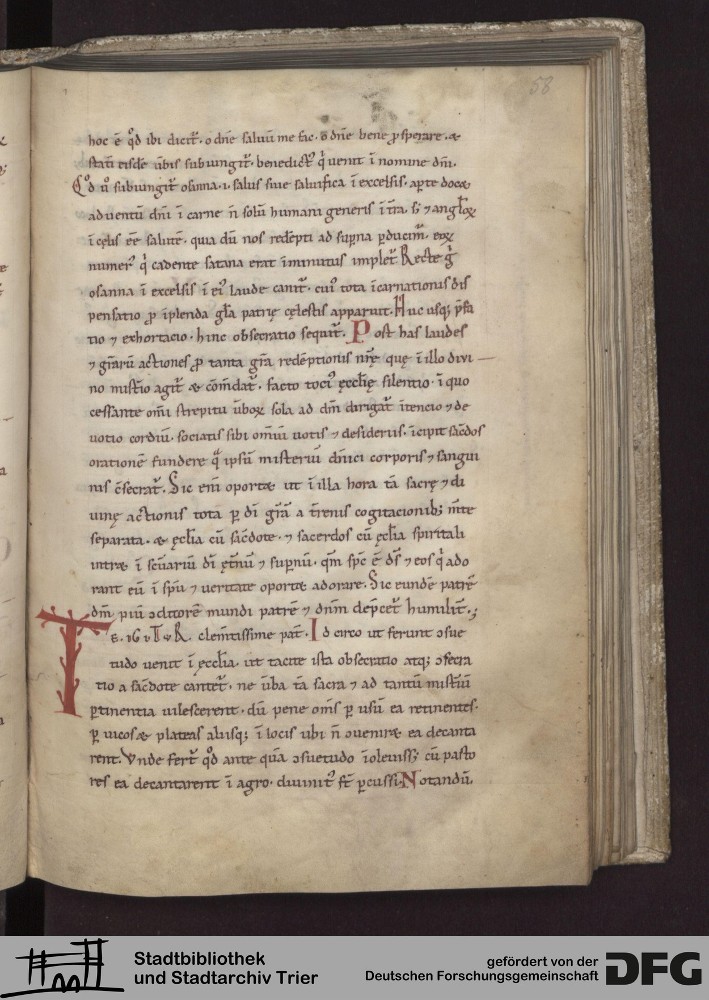 58
hoc ē qđ ibi dicit̄. o dn̄e saluū me fac. o dn̄e bene ꝓsperare. &
stati eisdē ūbis subiungit̄. benedict᷒ q̇ uenit ī nomine dn̄i.
Qđ ū subiungit osanna .i. salus siue saluifica ī excelsis. aꝑte doc&
aduentū dn̄i ī carne n̄ solū humani generis ī t̄ra. s; ⁊ angl̄oꝝ
ī cęlis eē salutē. quia dū nos redēpti ad suꝑna ꝑducim᷒. eoꝝ
numer᷒ q̇ cadente satana erat īminutus implet̄. Recte ḡ
osanna ī excelsis ī ei᷒ laude canit̄. cui᷒ tota īcarnationis dis
pensatio ꝓ īplenda gl̄a patrię cęlestis apparuit. Huc usq; p̄fa
tio ⁊ exhortacio. hinc obsecratio sequit̄. Post has laudes
⁊ gr̄arū actiones ꝓ tanta gr̄a redēptionis nr̄ę quę ī illo diui
no mist̄io agit̄ & cōm̄dat̄. facto toci᷒ ęccl̄ię silentio. ī quo
cessante om̄i strepitu ūboꝝ sola ad dm̄ dirigat̄ ītencio ⁊ de
uotio cordiū. sociatis sibi omniū uotis ⁊ desideriis. īcipit sac̄dos
orationē fundere q̄ ipsū misteriū dn̄ici corporis ⁊ sangui
nis c̄secrat̄. Sic eni oport& ut ī illa hora tā sacrę ⁊ di
uinę actionis tota ꝑ dī gr̄ā a t̄renis cogitacionib; m̄te
separata. & ęcl̄ia cū sac̄dote. ⁊ sacerdos cū ęcl̄ia spiritali
intr& ī sc̄uariū dī ęt̄nū ⁊ suꝑnū. qm̄ spc̄ ē ds̄ ⁊ eos q̇ ado
rant eū ī spū ⁊ ueritate oport& adorare. Sic eundē patrē
dm̄ piū ↄditorē mundi patrē ⁊ dn̄m dep̄cet̄ humilit̄.;
Te. igitur. clem̄tissime pat̄. Idcirco ut ferunt ↄsue
tudo uenit ī ęccl̄ia. ut tacite ista obsecratio atq; ↄfecra
tio a sac̄dote cantet̄. ne ūba tā sacra ⁊ ad tantū mist̄iū
ꝑtinentia uilescerent. dū pene om̄s ꝑ usū ea retinentes.
ꝑ uicos & plateas aliisq; ī locis ubi n̄ ↄuenir& ea decanta
rent. Vnde fert̄ qđ ante quā ↄsuetudo īoleuiss;. cū pasto
res ea decantarent ī agro. diuinit᷒ st̄ ꝑcussi. Notandū.
Stadtbibliothek
und Stadtarchiv Trier
gefördert von der
Deutschen Forschungsgemeinschaft
DFG